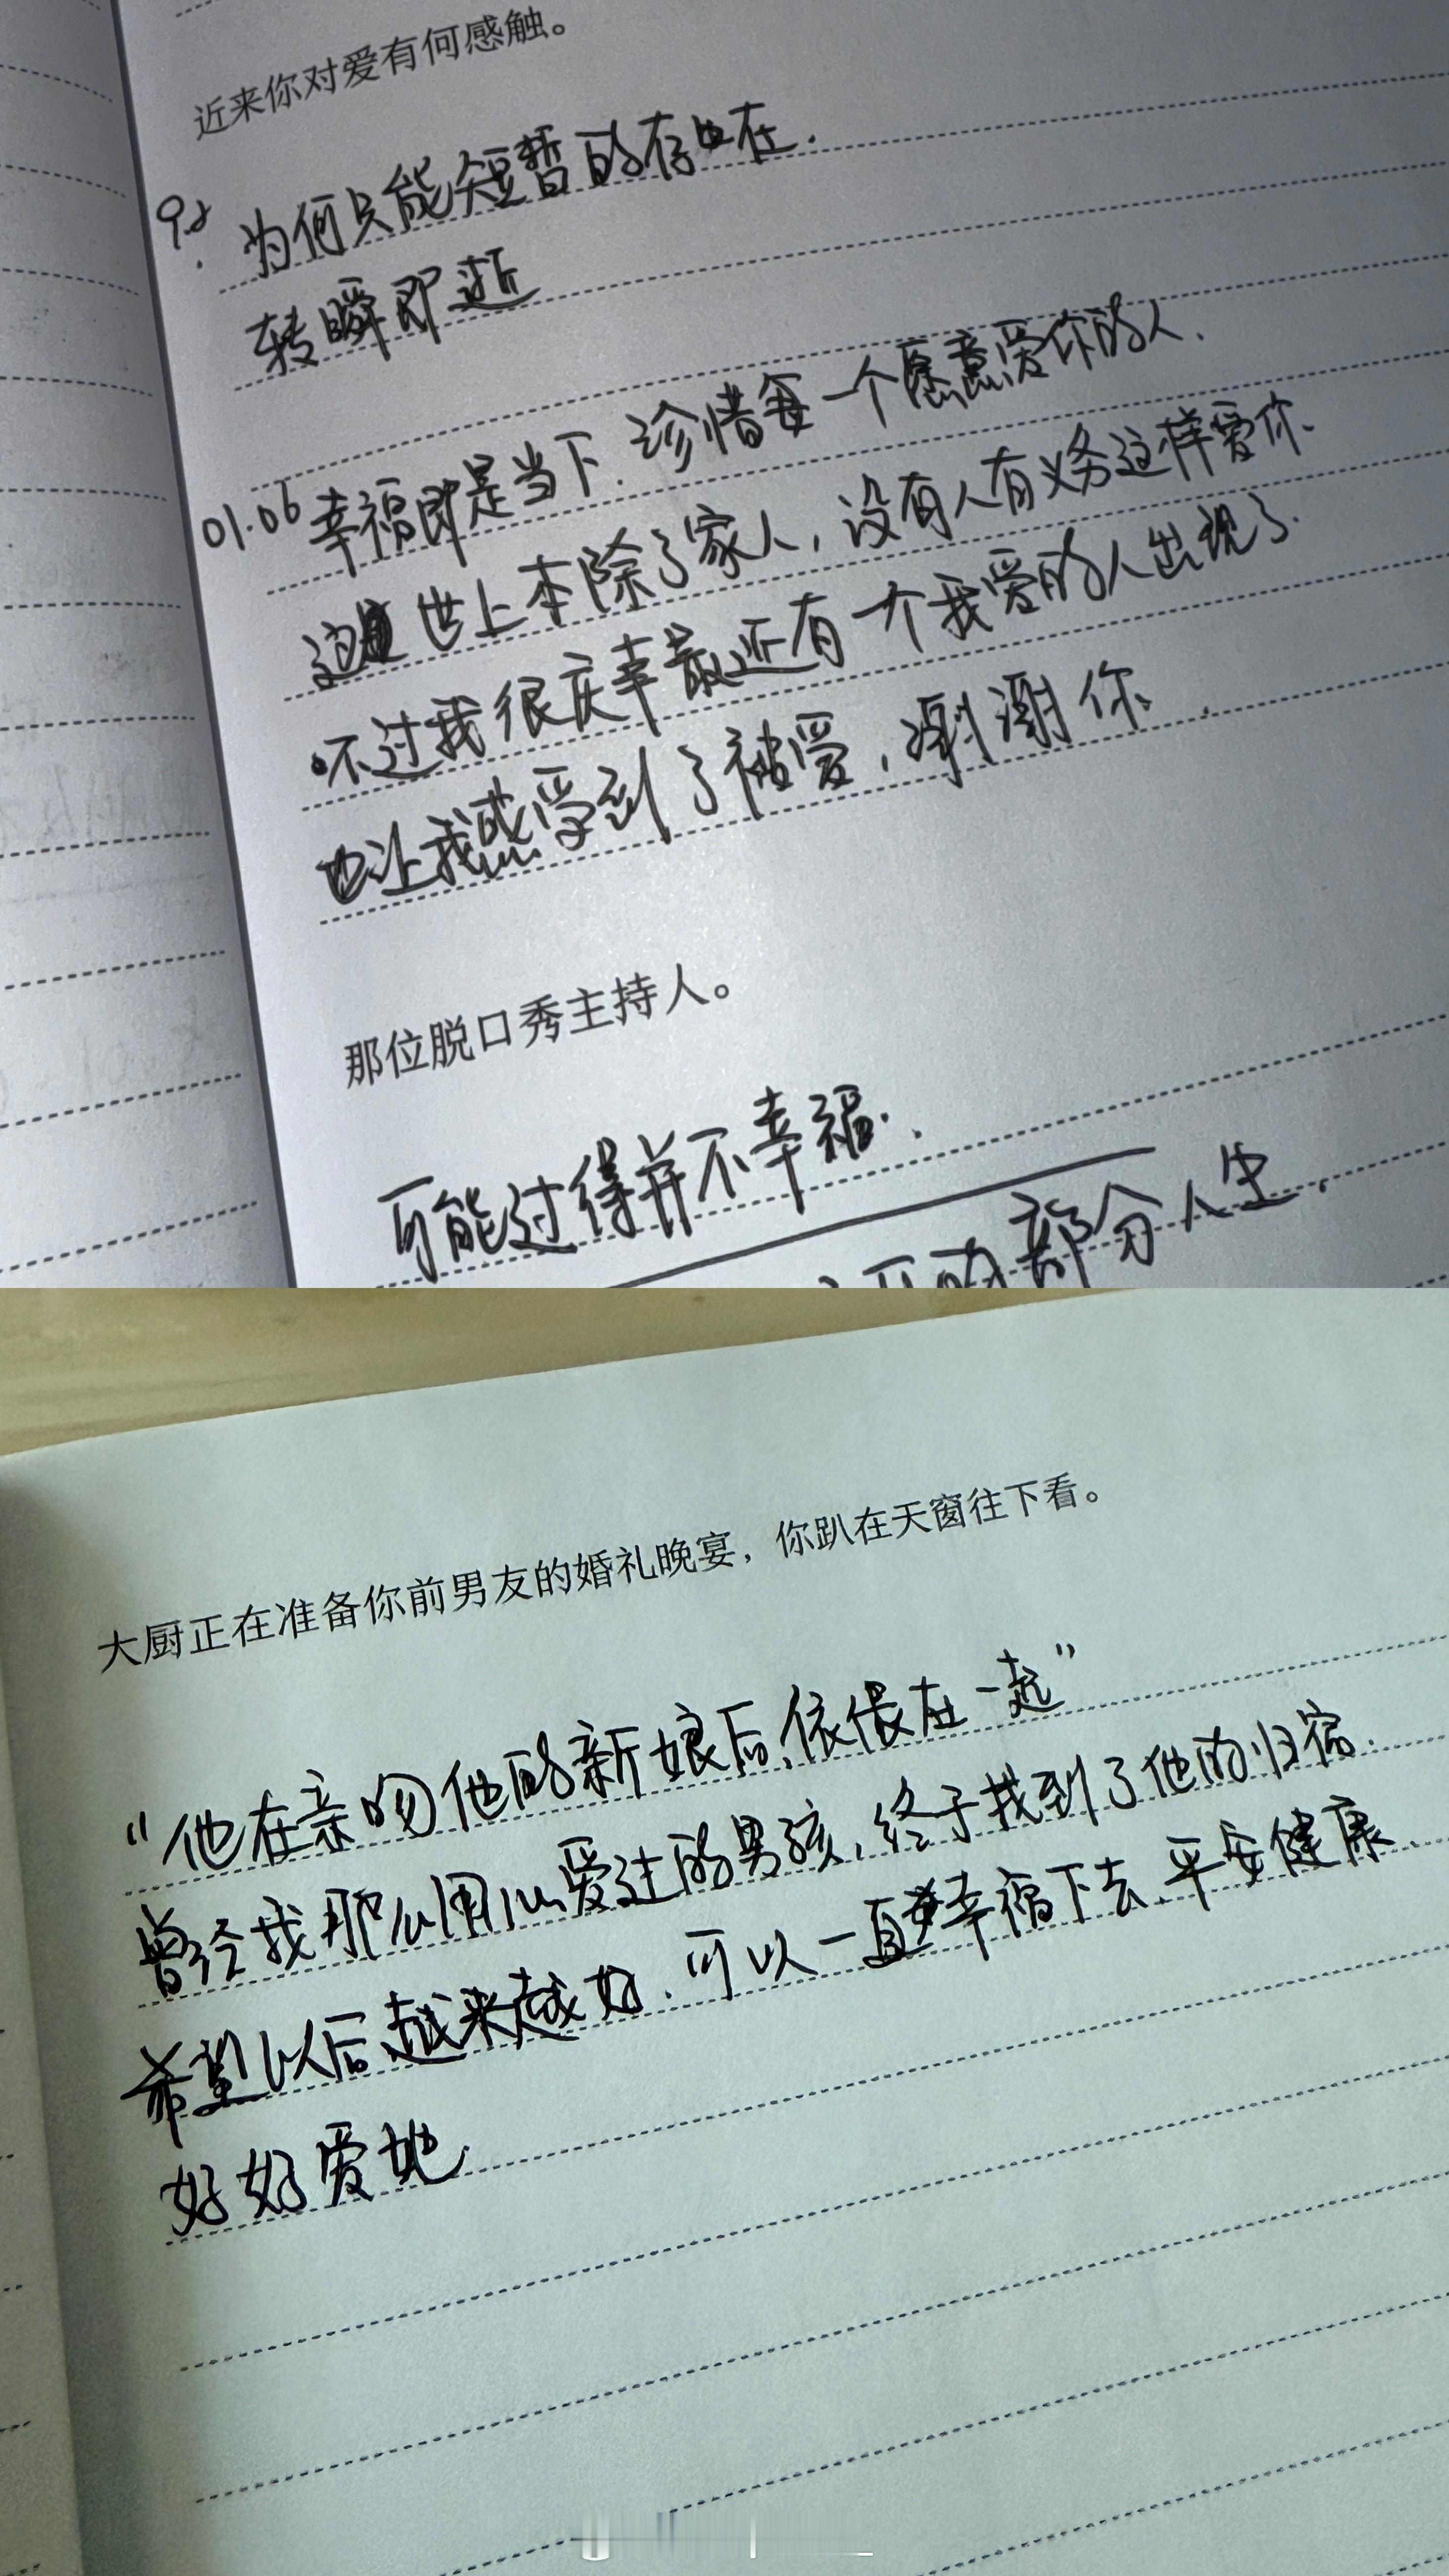 近来你对爱有何感触。
9.8 为何只能短暂的存在.
转瞬即逝
01.06 幸福即是当下.珍惜每一个愿意爱你的人.
这世上本除了家人,没有人有义务这样爱你.
不过我很庆幸最近还有一个我爱的人出现了.
也让我感受到了被爱,谢谢你.
那位脱口秀主持人。
可能过得并不幸福..
的部分人生.
大厨正在准备你前男友的婚礼晚宴，你趴在天窗往下看。
“他在亲吻他的新娘后,依偎在一起”
曾经我那么用心爱过的男孩,终于找到了他的归宿.
希望以后越来越好.可以一直幸福下去.平安健康.
好好爱她.